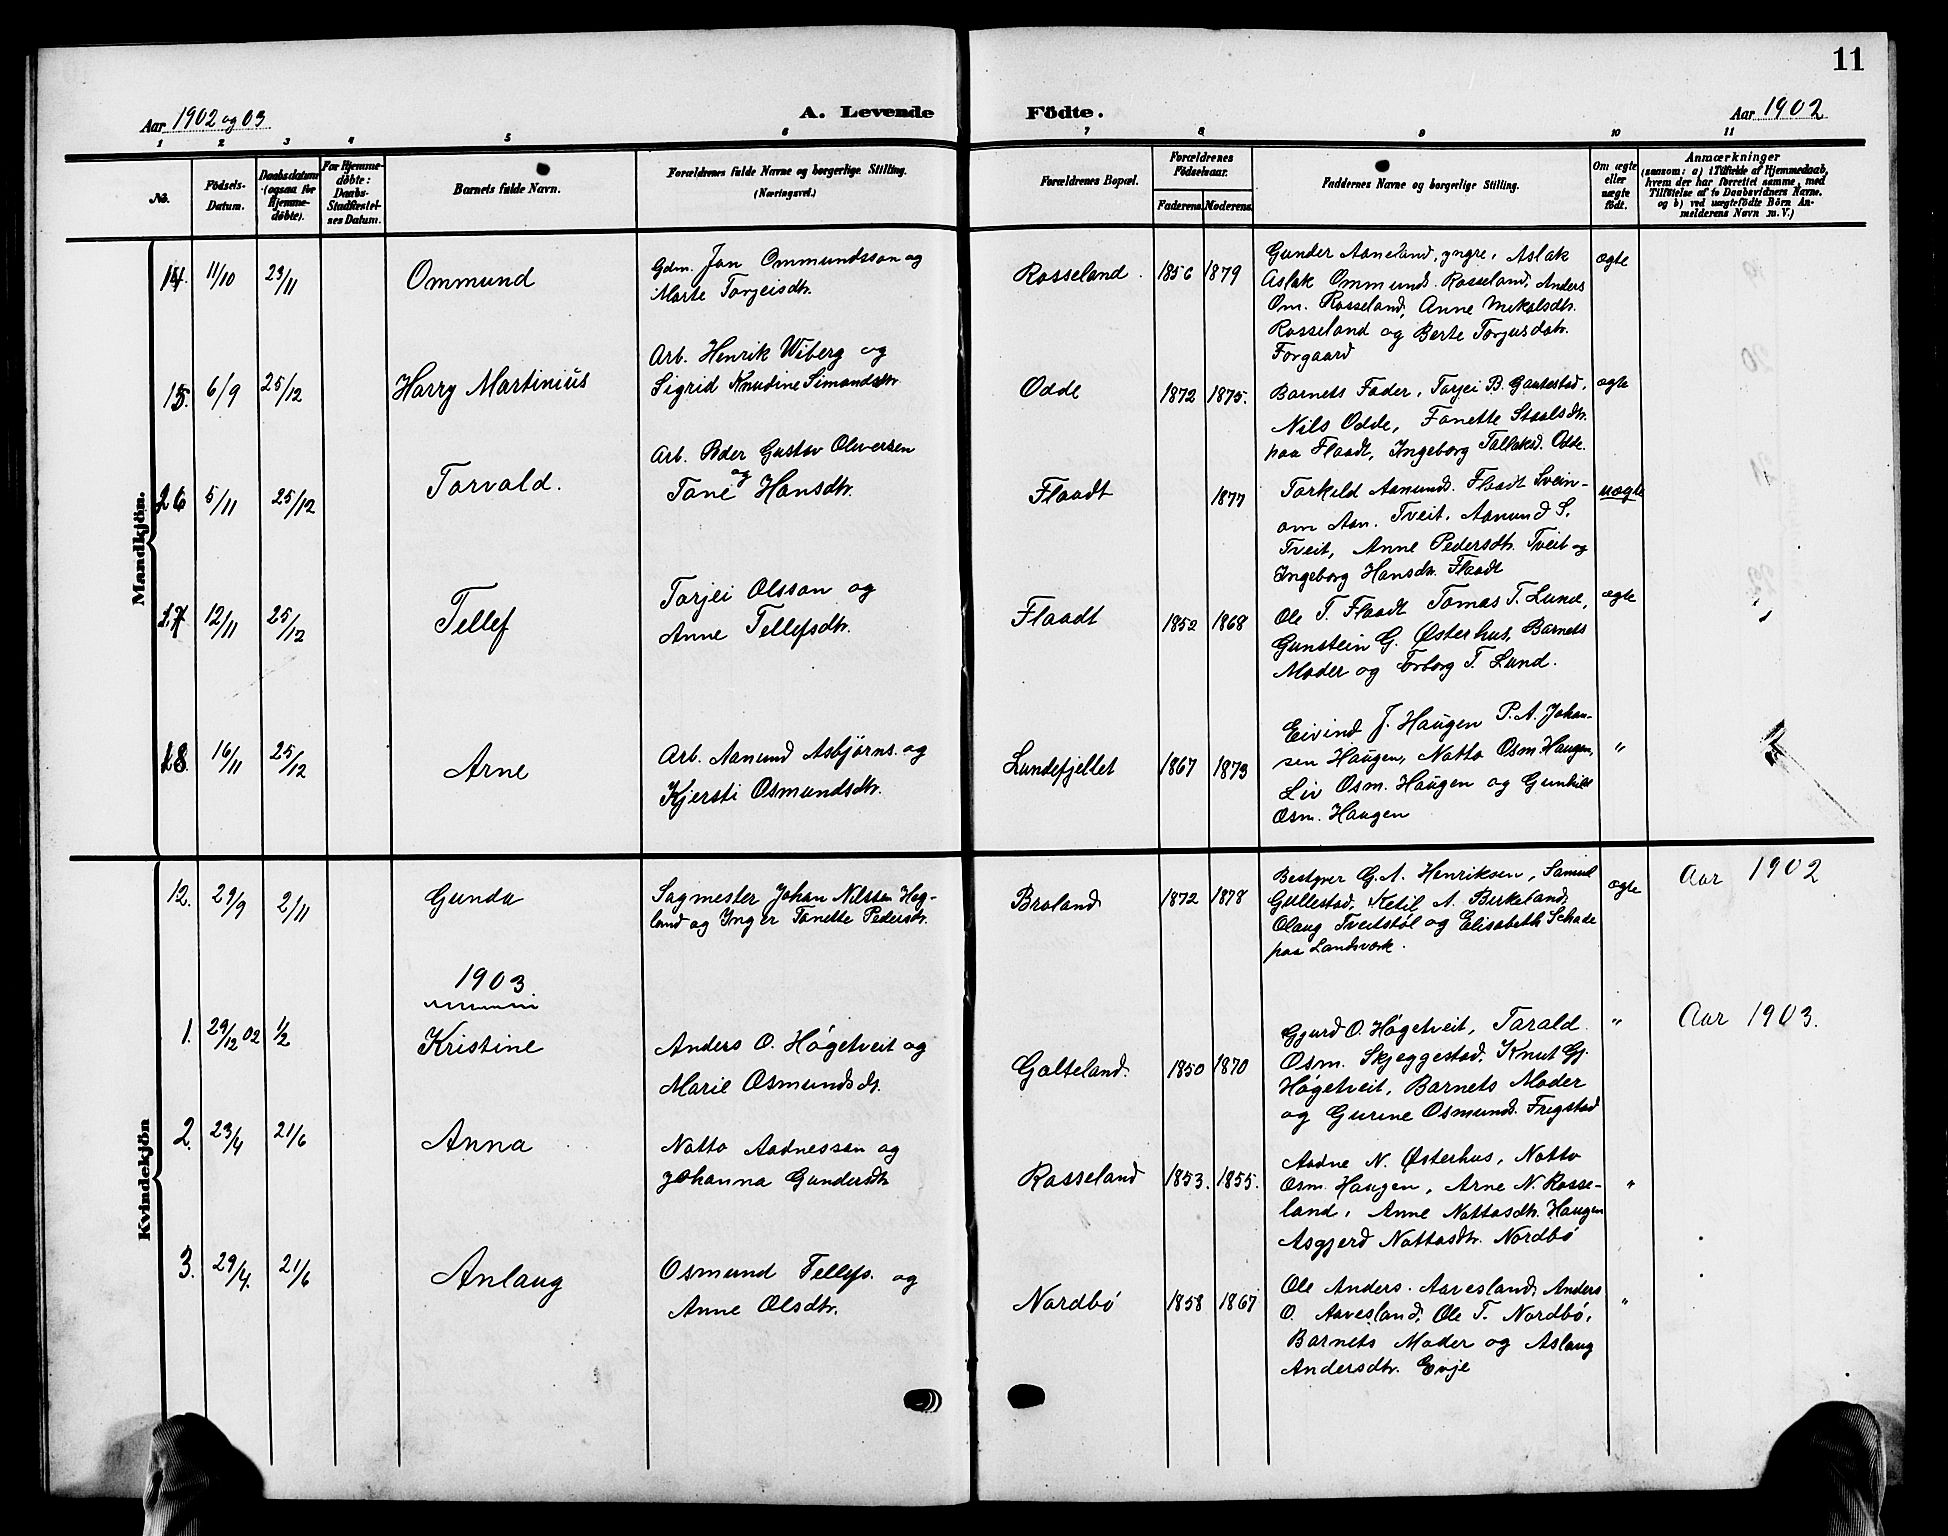 11
Aar 1902 og 03
A. Levende Födte.
Aar 1902
1 2 3 4 5 6 7 8 9 10 11
No.
Födsels-Datum.
Daabsdatum (ogsaa for Hjemmedöbte).
For Hjemmedöbte: Daabs-Stadfæstelses Datum.
Barnets fulde Navn.
Forældrenes fulde Navne og borgerlige Stilling. (Næringsvei.)
Forældrenes Bopæl.
Forældrenes Födselsaar.
Faderens. Moderens.
Faddernes Navne og borgerlige Stilling.
Om ægte eller uægte födt.
Anmærkninger
(saasom: a) i Tilfælde af Hjemmedaab, hvem der har forrettet samme, med Tilföielse af to Daabsvidners Navne. og b) ved uægtefödte Börn Anmelderens Navn m. V.)
Mandkjön.
14. 11/10 23/11 Ommund
Gdm. Jon Ommundsson og
Marte Torjeisdtr.
Rosseland. 1856 1879
Gunder Aaneland, yngre, Aslak
Aslak Ommunds. Rosseland, Anders
Om. Rosseland, Anne Mikalsdtr.
Rosseland og Berte Torjusdatr.
Forgaard
ægte
15. 6/9 25/12 Harry Martinius
Arb. Henrik Wiberg og
Sigrid Knudine Simondsdtr
Odde 1872 1875.
Barnets Fader, Torjei B. Gautestad,
Nils Odde, Fanette Staalsdtr.
paa Flaadt, Ingeborg Tallaksd. Odde.
ægte
16 5/11 25/12 Torvald.
Arb. Peder Gustav Olversen
og
Tone Hansdtr.
Flaadt 1877
Torkild Aamunds. Flaadt Svein-
om Aan. Tveit, Aanund S.
Tveit, Anne Pedersdtr. Tveit og
Ingeborg Hansdtr. Flaadt
uægte
17 12/11 25/12 Tellef
Torjei Olsson og
Anne Tellefsdtr.
Flaadt 1852 1868
Ole T. Flaadt Tomas T. Lund,
Gunstein G. Østerhus, Barnets
Moder og Torborg T. Lund.
ægte
18. 16/11 25/12 Arne
Arb. Aanund Asbjørns. og
Kjersti Osmundsdtr.
Lundefjellet 1867 1873
Eivind J. Haugen P. A. Johan-
sen Haugen, Notto Osm. Haugen,
Liv Osm. Haugen og Gunhild
Osm. Haugen
"
Kvindekjön
12. 29/9 2/11 Gunda
Sagmester Johan Nilsen Hog-
land og Inger Tonette Pedersdtr.
Broland 1872 1878
Bestyrer G. A. Henriksen, Samuel
Gullestad, Ketil A. Birkeland,
Olaug Tveitstøl og Elisabeth Schade
paa Landsværk.
ægte
Aar 1902
1903
1. 29/12 02 1/2 Kristine
Anders O. Høgetveit og
Marie Osmundsdt.
Galteland. 1850 1870
Gjurd O. Høgetveit, Tarald
Osm. Skjeggestad, Knut Gj.
Høgetveit, Barnets Moder
og Gurine Osmunds. Frigstad
"
Aar 1903.
2. 23/4 21/6 Anna
Notto Aadnesson og
Johanna Gundersdtr
Rosseland 1853. 1855.
Aadne N. Østerhus, Notto
Osm. Haugen, Arne N. Rosse-
land, Anne Nottosdtr. Haugen
Asgjerd Nottosdtr. Nordbø
"
3. 29/4. 21/6 Anlaug
Osmund Tellefs. og
Anne Olsdtr.
Nordbø 1858 1867
Ole Anders. Aavesland, Anders
O. Aavesland, Ole T. Nordbø,
Barnets Moder og Aslaug
Andersdtr. Evje
"